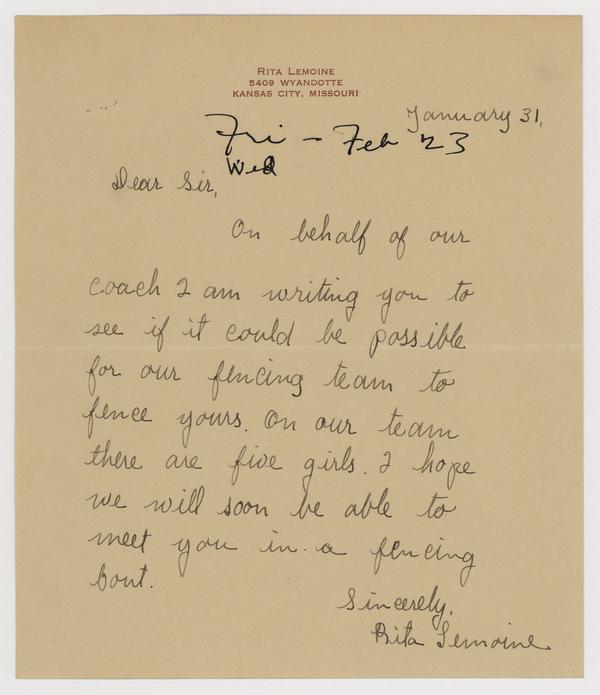 RITA LEMOINE
5409 WYANDOTTE
KANSAS CITY, MISSOURI
January 31,
Fri - Feb 23
Wed
Dear Sir,
On behalf of our
coach I am writing you to
see if it could be possible
for our fencing team to
fence yours. On our team
there are five girls. I hope
we will soon be able to
meet you in a fencing
bout.
Sincerely,
Rita Lemoine